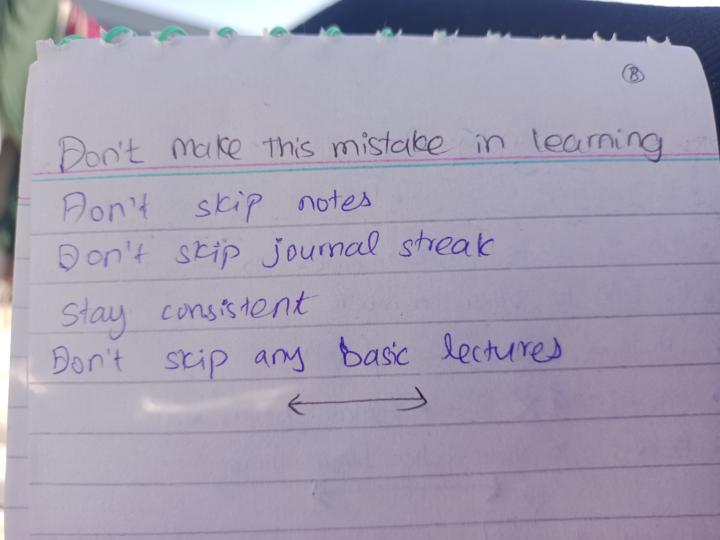 8
Don't make this mistake in learning
Don't skip notes
Don't skip journal streak
Stay consistent
Don't skip any basic lectures